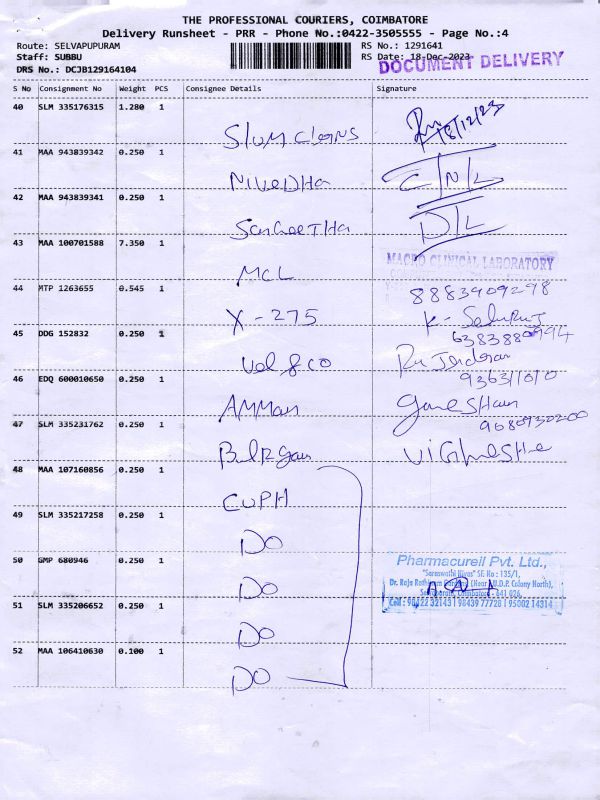 THE PROFESSIONAL COURIERS, COIMBATORE
Delivery Runsheet - PRR - Phone No.:0422-3505555 - Page No.:4
Route: SELVAPUPURAM
RS No.: 1291641
Staff: SUBBU
RS Date: 18-Dec-2023
DRS No.: DCJB129164104
DOCUMENT DELIVERY
S No Consignment No Weight PCS Consignee Details Signature
40 SLM 335176315 1.280 1
18/12/23
41 MAA 943839342 0.250 1
NIVEDHA
C/N/L
42 MAA 943839341 0.250 1
SanGeeTHa
D/L
43 MAA 100701588 7.350 1
MACRO CLINICAL LABORATORY
MCL
44 MTP 1263655 0.545 1
8883909298
X - 275
45 DDG 152832 0.250 1
Vel & CO
46 EDQ 600010650 0.250 1
AMMan
GaneSHan
47 SLM 335231762 0.250 1
9680930200
ViGHneSHe
48 MAA 107160856 0.250 1
CUPH
49 SLM 335217258 0.250 1
DO
50 GMP 680946 0.250 1
Pharmacureil Pvt. Ltd.,
"Saraswathi Nivas" SF. No : 135/1,
DO
Dr. Raja Rathinam Gardens (Near V.U.D.P. Colony North),
Coimbatore - 641 026.
51 SLM 335206652 0.250 1
Cell : 98422 32143 | 98439 77728 | 95002 14314
DO
52 MAA 106410630 0.100 1
DO